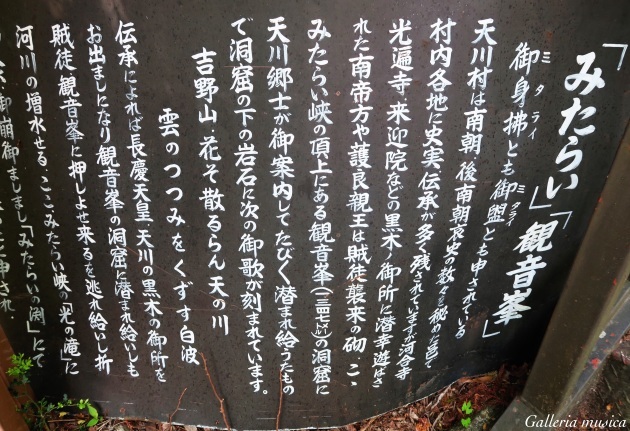 「みたらい」「観音峯」
御身拂とも御盥とも申されている
ミタライ ミタライ
天川村は南朝 後南朝哀史の数々を秘めた邑で
村内各地に史実、伝承が多く残されていますが河合寺
光遍寺 来迎院などの黒木ノ御所に潜幸遊ばさ
れた南帝方や護良親王は賊徒襲来の砌、ここ
みたらい峡の頂上にある観音峯(の洞窟に
天川郷士が御案内してたびく潜まれ給うたもの
で洞窟の下の岩石に次の御歌が刻まれています。
吉野山 花そ散るらん天の川
雲のつつみをくずす白波
伝承によれば長慶天皇 天川の黒木の御所を
お出ましになり観音峯の洞窟に潜まれ給いしも
賊徒 観音峯に押しよせ来るを逃れ給いし折
河川の増水せる、ここみたらい峡の「光の滝」に
御崩御ましまし「みたらいの渕」にて
申され
Galleria musica